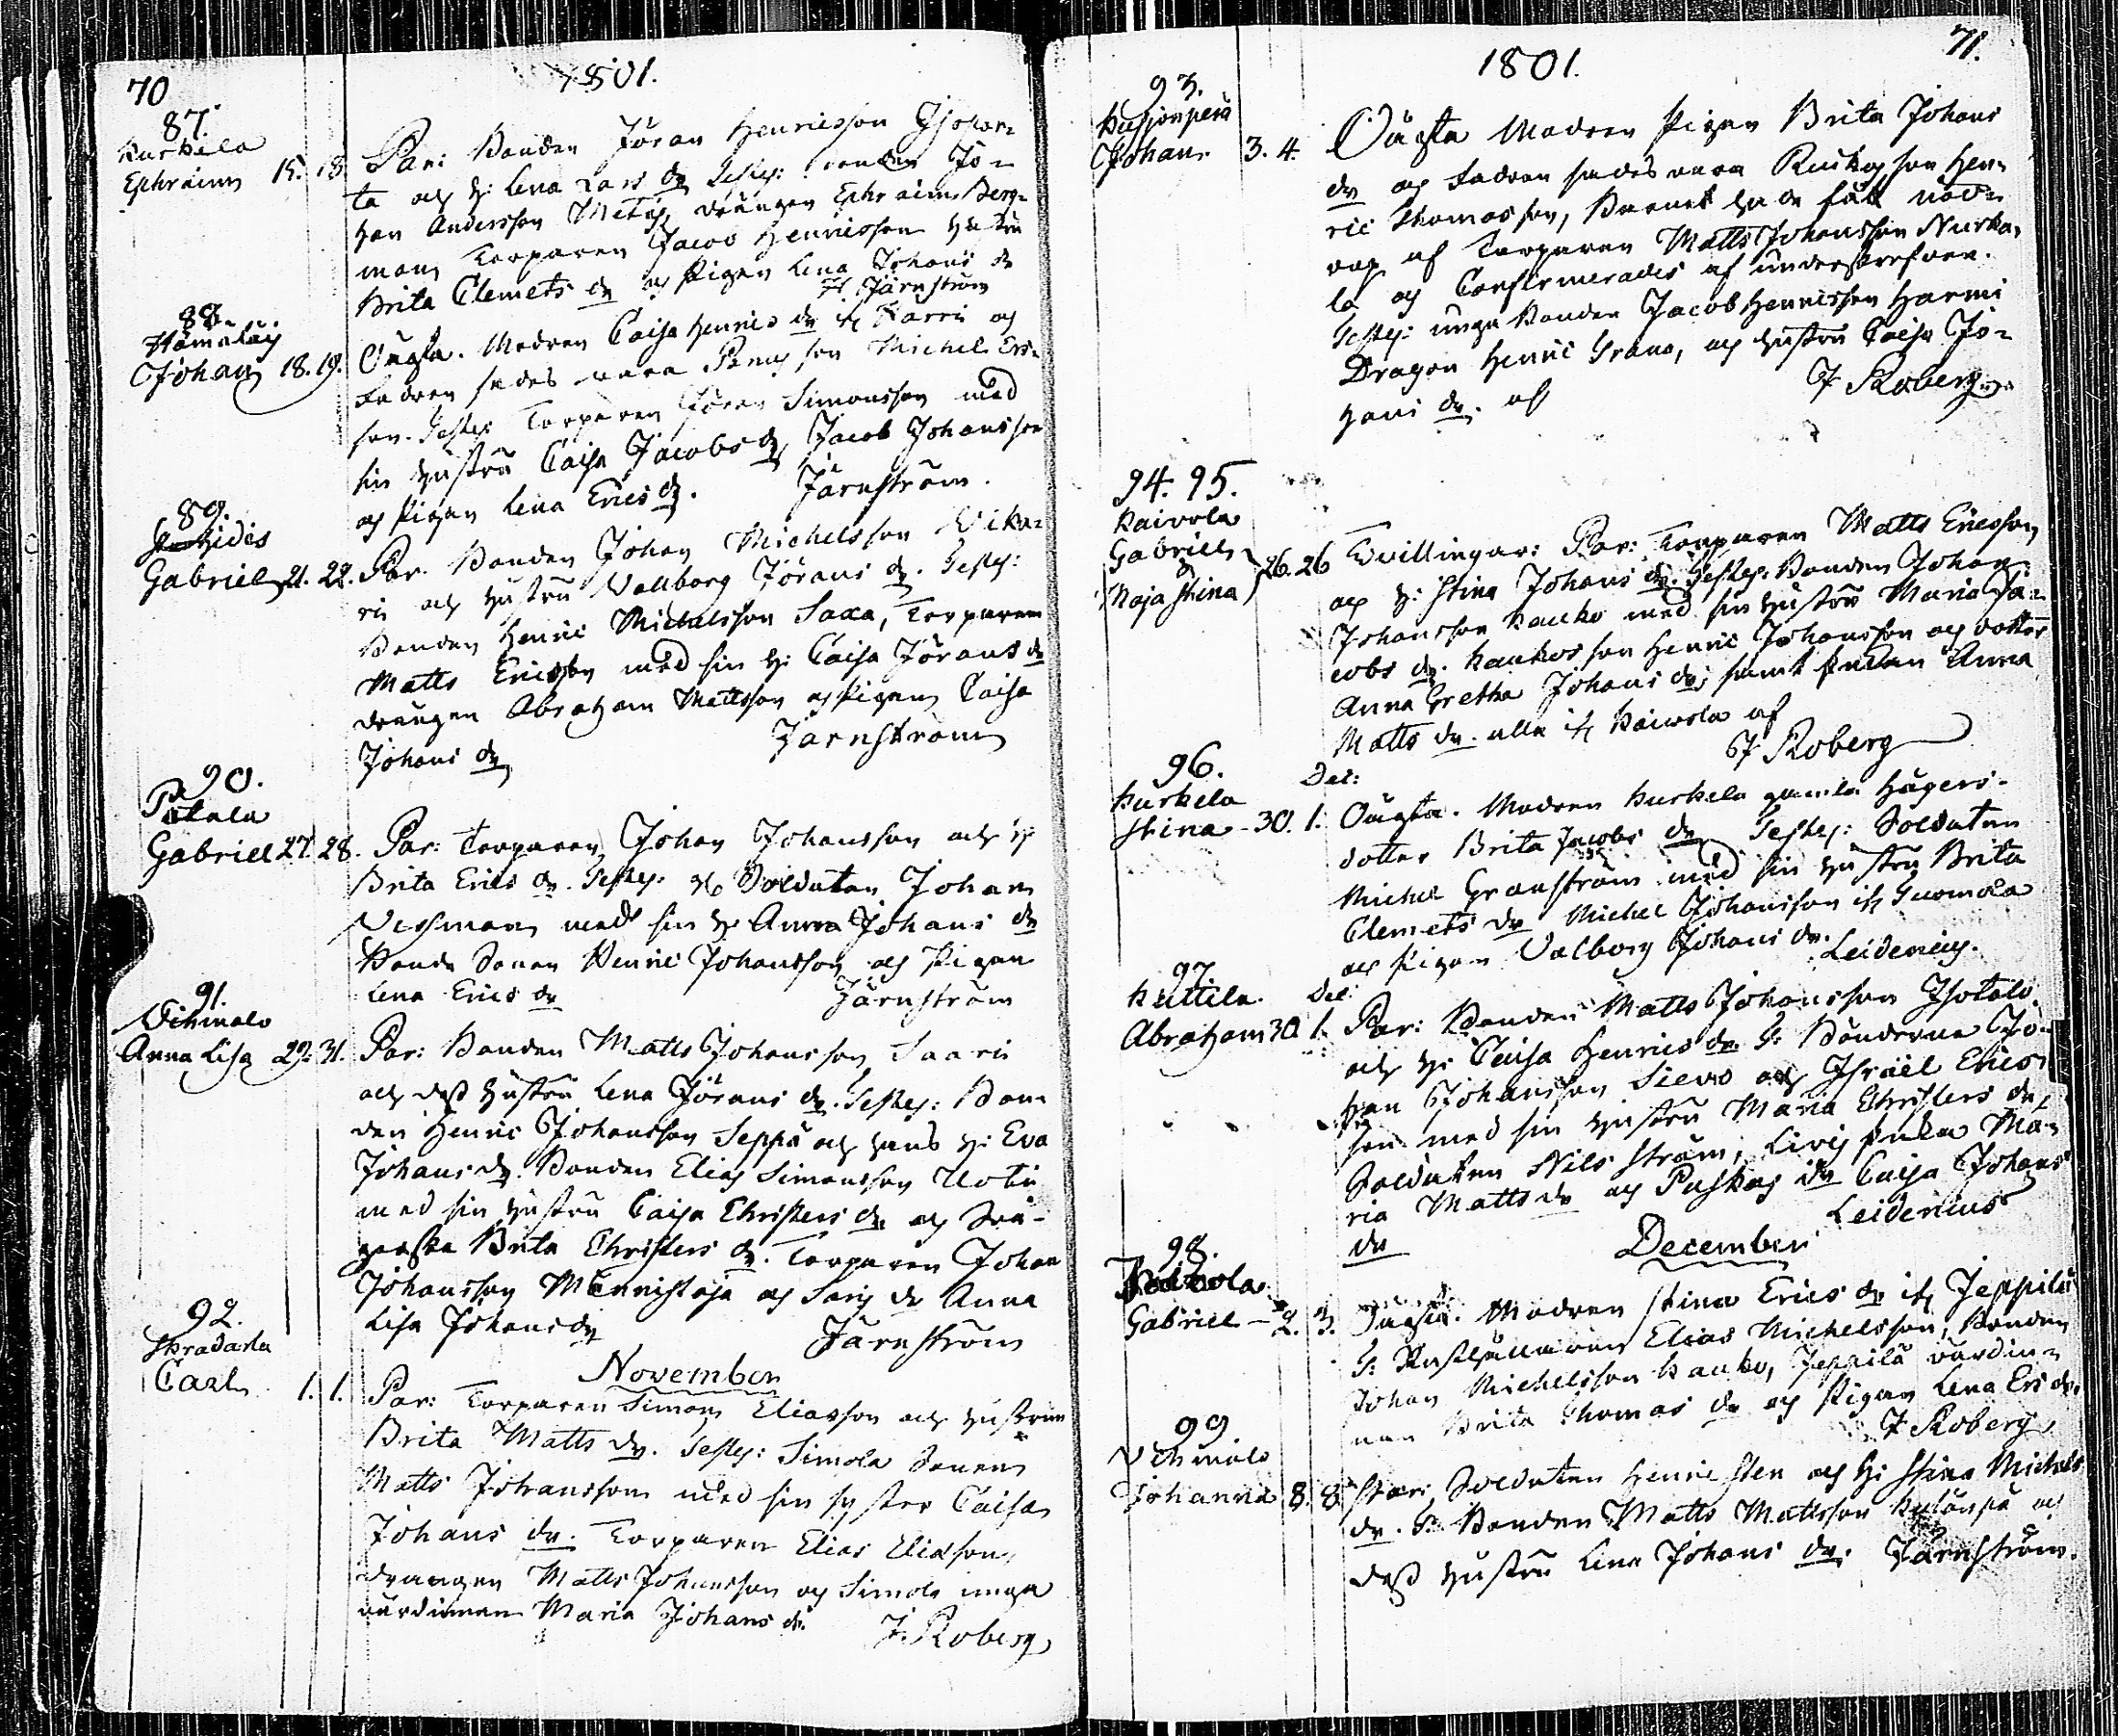 70
1801.
87.
Kurkela
Ephraim 15. 18.
Par: Bonden Jöran Henricsson Isotar
ta och h: Lena Lars dr Test: bonden Jo-
han Andersson Mets drängen Ephraim Berg-
man Torparen Jacob Henricsson hustru
Brita Clemets dr och Pigan Lena Johans dr
Järnström
88.
Johan 18. 19.
Oägta. Modren Caisa Henrics dr ifr Harri och
Fadren sades vara son Michel Ers-
son. Test: Torparen Jöran Simonsson med
sin hustru Caisa Jacobs dr, Jacob Johansson
och Pigan Lena Erics dr. Järnström.
89.
Gabriel 21. 22.
Par. Bonden Johan Michelsson Vika-
ri och hustru Vallborg Jörans dr. Test:
Bonden Henric Michelsson Saxa, Torparen
Matts Ericsson med sin h: Caisa Jörans dr
drängen Abraham Mattsson och Pigan Caisa
Johans dr Järnström
90.
Gabriel 27. 28.
Par: Torparen Johan Johansson och h:
Brita Erics dr. Test: Soldaten Johan
Vessman med sin h: Anna Johans dr
Bonde Sonen Henric Johansson och Pigan
Lena Erics dr Järnström
91.
Vehmalo
Anna Lisa 29. 31.
Par: Bonden Matts Johansson Saari
och dess hustru Lena Jörans dr. Test: Bon-
den Henric Johansson Seppä och hans h: Eva
Johans dr. Bonden Elias Simonsson Uoti
med sin hustru Caisa Christers dr och
Brita Christers dr. Torparen Johan
Johansson Mannistöja och dr Anna
Lisa Johans dr Järnström
November
92.
Carl 1. 1.
Par: Torparen Simon Eliasson och hustrun
Brita Matts dr. Test: Simola Sonen
Matts Johansson med sin syster Caisa
Johans dr. Torparen Elias Eliasson,
drängen Matts Johansson och Simola unga
värdinnan Maria Johans dr. J. Roberg
71.
1801.
93.
Johan 3. 4.
Oägta Modren Pigan Brita Johans
dr och Fadren sades vara son Hen-
ric Thomasson, Barnet hade fått nöd-
dop af Torparen Matts Johansson Nurka-
la och Confirmerades af underskrefven.
Test: unga Bonden Jacob Henricsson Harmi
Dragon Henric Grano, och hustru Caisa Jo-
hans dr. af J Roberg
94. 95.
Kaivola
Gabriel
&
Maja Stina 26. 26
Tvillingar: Par: Torparen Matts Ericsson
och h: Stina Johans dr. Test: Bonden Johan
Johansson Kauko med sin hustru Maria Ja-
cobs dr. Kaukos son Henric Johansson och dotter
Anna Gretha Johans dr, samt Enkan Anna
Matts dr. alla ifr Kaivola af
J Roberg
96.
Kurkela
Stina 30. Dec: 1.
Oägta. Modren Kurkela gamla Hägers-
dotter Brita Jacobs dr Test: Soldaten
Michel Granström med sin hustru Brita
Clemets dr Michel Johansson ifr Tuomola
och Pigan Valborg Johans dr. Leidenius.
97.
Kuttila.
Abraham 30. Dec: 1.
Par: Bonden Matts Johansson Isotalo
och h: Caisa Henrics dr T: Bönderna Jo-
han Johansson Sievo och Israel Erics-
son med sin hustru Maria Christers dr,
Soldaten Nils Ström, Enka Ma-
ria Matts dr och dr Caisa Johans
dr Leidenius
December
98.
Kaivola
Gabriel 2. 3.
Oägta. Modren Stina Erics dr ifr Jeppilä
T: Rusthållaren Elias Michelsson, Bonden
Johan Michelsson Kauko, Jeppilä värdin-
nan Brita Thomas dr och Pigan Lena Ers dr.
J Roberg
99.
Vehmalo
Johanna 8. 8.
Par: Soldaten Henric Sten och h: Stina Michels
dr. T: Bonden Matts Mattsson och
dess hustru Lena Johans dr. Järnström.